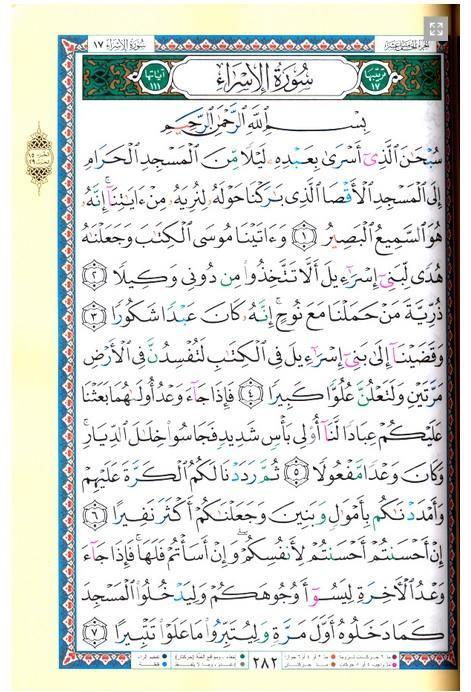 سُورَةُ الإِسْرَاء ١٧
الجزء الخامس عشر
فهرسها ١٧
سُورَةُ الإِسْرَاءِ
آياتها ١١١
بِسْمِ ٱللَّهِ ٱلرَّحْمَٰنِ ٱلرَّحِيمِ
سُبْحَٰنَ ٱلَّذِىٓ أَسْرَىٰ بِعَبْدِهِۦ لَيْلًا مِّنَ ٱلْمَسْجِدِ ٱلْحَرَامِ
إِلَى ٱلْمَسْجِدِ ٱلْأَقْصَا ٱلَّذِى بَٰرَكْنَا حَوْلَهُۥ لِنُرِيَهُۥ مِنْ ءَايَٰتِنَآ ۚ إِنَّهُۥ
هُوَ ٱلسَّمِيعُ ٱلْبَصِيرُ ١ وَءَاتَيْنَا مُوسَى ٱلْكِتَٰبَ وَجَعَلْنَٰهُ
هُدًى لِّبَنِىٓ إِسْرَٰٓءِيلَ أَلَّا تَتَّخِذُوا۟ مِن دُونِى وَكِيلًا ٢
ذُرِّيَّةَ مَنْ حَمَلْنَا مَعَ نُوحٍ ۚ إِنَّهُۥ كَانَ عَبْدًا شَكُورًا ٣
وَقَضَيْنَآ إِلَىٰ بَنِىٓ إِسْرَٰٓءِيلَ فِى ٱلْكِتَٰبِ لَتُفْسِدُنَّ فِى ٱلْأَرْضِ
مَرَّتَيْنِ وَلَتَعْلُنَّ عُلُوًّا كَبِيرًا ٤ فَإِذَا جَآءَ وَعْدُ أُولَىٰهُمَا بَعَثْنَا
عَلَيْكُمْ عِبَادًا لَّنَآ أُو۟لِى بَأْسٍ شَدِيدٍ فَجَاسُوا۟ خِلَٰلَ ٱلدِّيَارِ ۚ
وَكَانَ وَعْدًا مَّفْعُولًا ٥ ثُمَّ رَدَدْنَا لَكُمُ ٱلْكَرَّةَ عَلَيْهِمْ
وَأَمْدَدْنَٰكُم بِأَمْوَٰلٍ وَبَنِينَ وَجَعَلْنَٰكُمْ أَكْثَرَ نَفِيرًا ٦
إِنْ أَحْسَنتُمْ أَحْسَنتُمْ لِأَنفُسِكُمْ ۖ وَإِنْ أَسَأْتُمْ فَلَهَا ۚ فَإِذَا جَآءَ
وَعْدُ ٱلْءَاخِرَةِ لِيَسُـۥٓـُٔوا۟ وُجُوهَكُمْ وَلِيَدْخُلُوا۟ ٱلْمَسْجِدَ
كَمَا دَخَلُوهُ أَوَّلَ مَرَّةٍ وَلِيُتَبِّرُوا۟ مَا عَلَوْا۟ تَتْبِيرًا ٧
٢٨٢